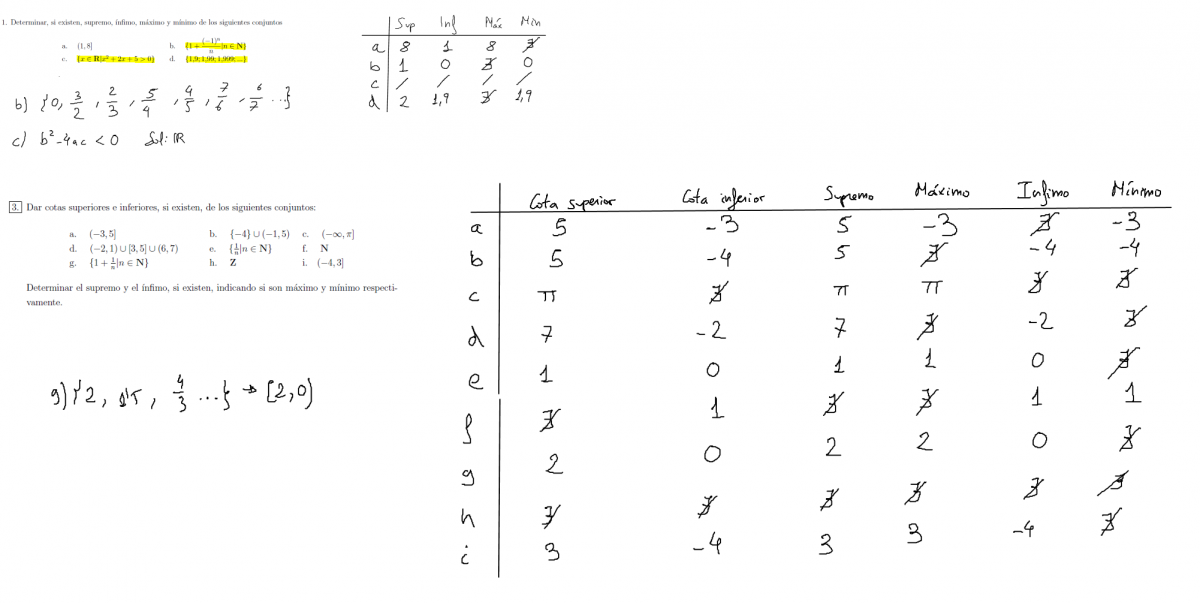 1. Determinar, si existen, supremo, ínfimo, máximo y mínimo de los siguientes conjuntos
a. (1, 8] b. {1 + (−1)ⁿ/n | n ∈ N}
c. {x ∈ R|x² + 2x + 5 > 0} d. {1,9; 1,99; 1,999; ...}
Sup Inf Máx Mín
a 8 1 8 ∄
b 1 0 ∄ 0
c / / / /
d 2 1,9 ∄ 1,9
b) {0, 3/2, 2/3, 5/4, 4/5, 7/6, 6/7 ...}
c) b²-4ac < 0 Sol: ℝ
3. Dar cotas superiores e inferiores, si existen, de los siguientes conjuntos:
a. (−3, 5] b. {−4} ∪ (−1, 5) c. (−∞, π]
d. (−2, 1) ∪ [3, 5] ∪ (6, 7) e. {1/n | n ∈ N} f. N
g. {1 + 1/n | n ∈ N} h. Z i. (−4, 3]
Determinar el supremo y el ínfimo, si existen, indicando si son máximo y mínimo respecti-
vamente.
g) {2, 1'5, 4/3 ...} → [2,0)
Cota superior Cota inferior Supremo Máximo Infimo Mínimo
a 5 -3 5 -3 ∄ -3
b 5 -4 5 ∄ -4 -4
c π ∄ π π ∄ ∄
d 7 -2 7 ∄ -2 ∄
e 1 0 1 1 0 ∄
f ∄ 1 ∄ ∄ 1 1
g 2 0 2 2 0 ∄
h ∄ ∄ ∄ ∄ ∄ ∄
i 3 -4 3 3 -4 ∄